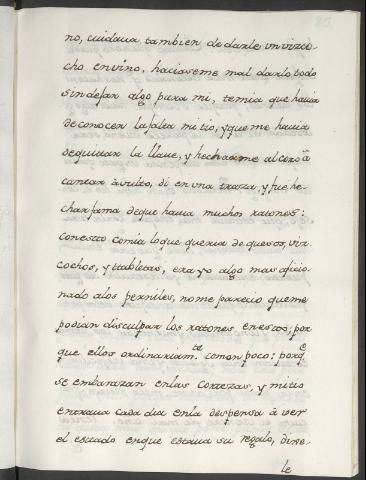 no, cuidaua tambien de darle un vizco-
cho en vino, haciaseme mal darlo todo
sin dejar algo para mi, temia que hauia
de conocer la falta mi tio, y que me hauia
de quitar la llaue, y hecharme al coro â
cantar â uulto, di en una traza, y fue he-
char fama de que hauia muchos ratones:
con estto comia lo que queria de quesos, viz-
cochos, y ttabletas, era yo algo mas aficio-
nado a los perniles, no me parecio que me
podian disculpar los ratones en esto; por
que ellos ordinariam.te comen poco: porq.e
se embarazan en las cortezas, y mi tio
entraua cada dia en la despensa â ver
el estado en que estaua su regalo, dixe-
le